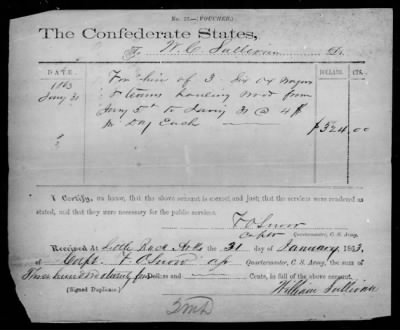 No. 22.—(VOUCHER.)
The Confederate States,
To W. C. Sullivan Dr.
DATE. DOLLARS. CTS.
1863
Jany 31 For hire of 3 Six Ox Wagons
& teams hauling Wood from
Jany 5th to Jany 31 @ 4$
pr Day Each $324.00
I Certify, on honor, that the above account is correct and just; that the services were rendered as
stated, and that they were necessary for the public services.
F O Snow
Quartermaster, C. S. Army.
Received At Little Rock Arks the 31 day of January 1863,
of Capt. F. O Snow Quartermaster, C. S. Army, the sum of
Three hundred twenty four Dollars and Cents, in full of the above account.
(Signed Duplicate) William Sullivan